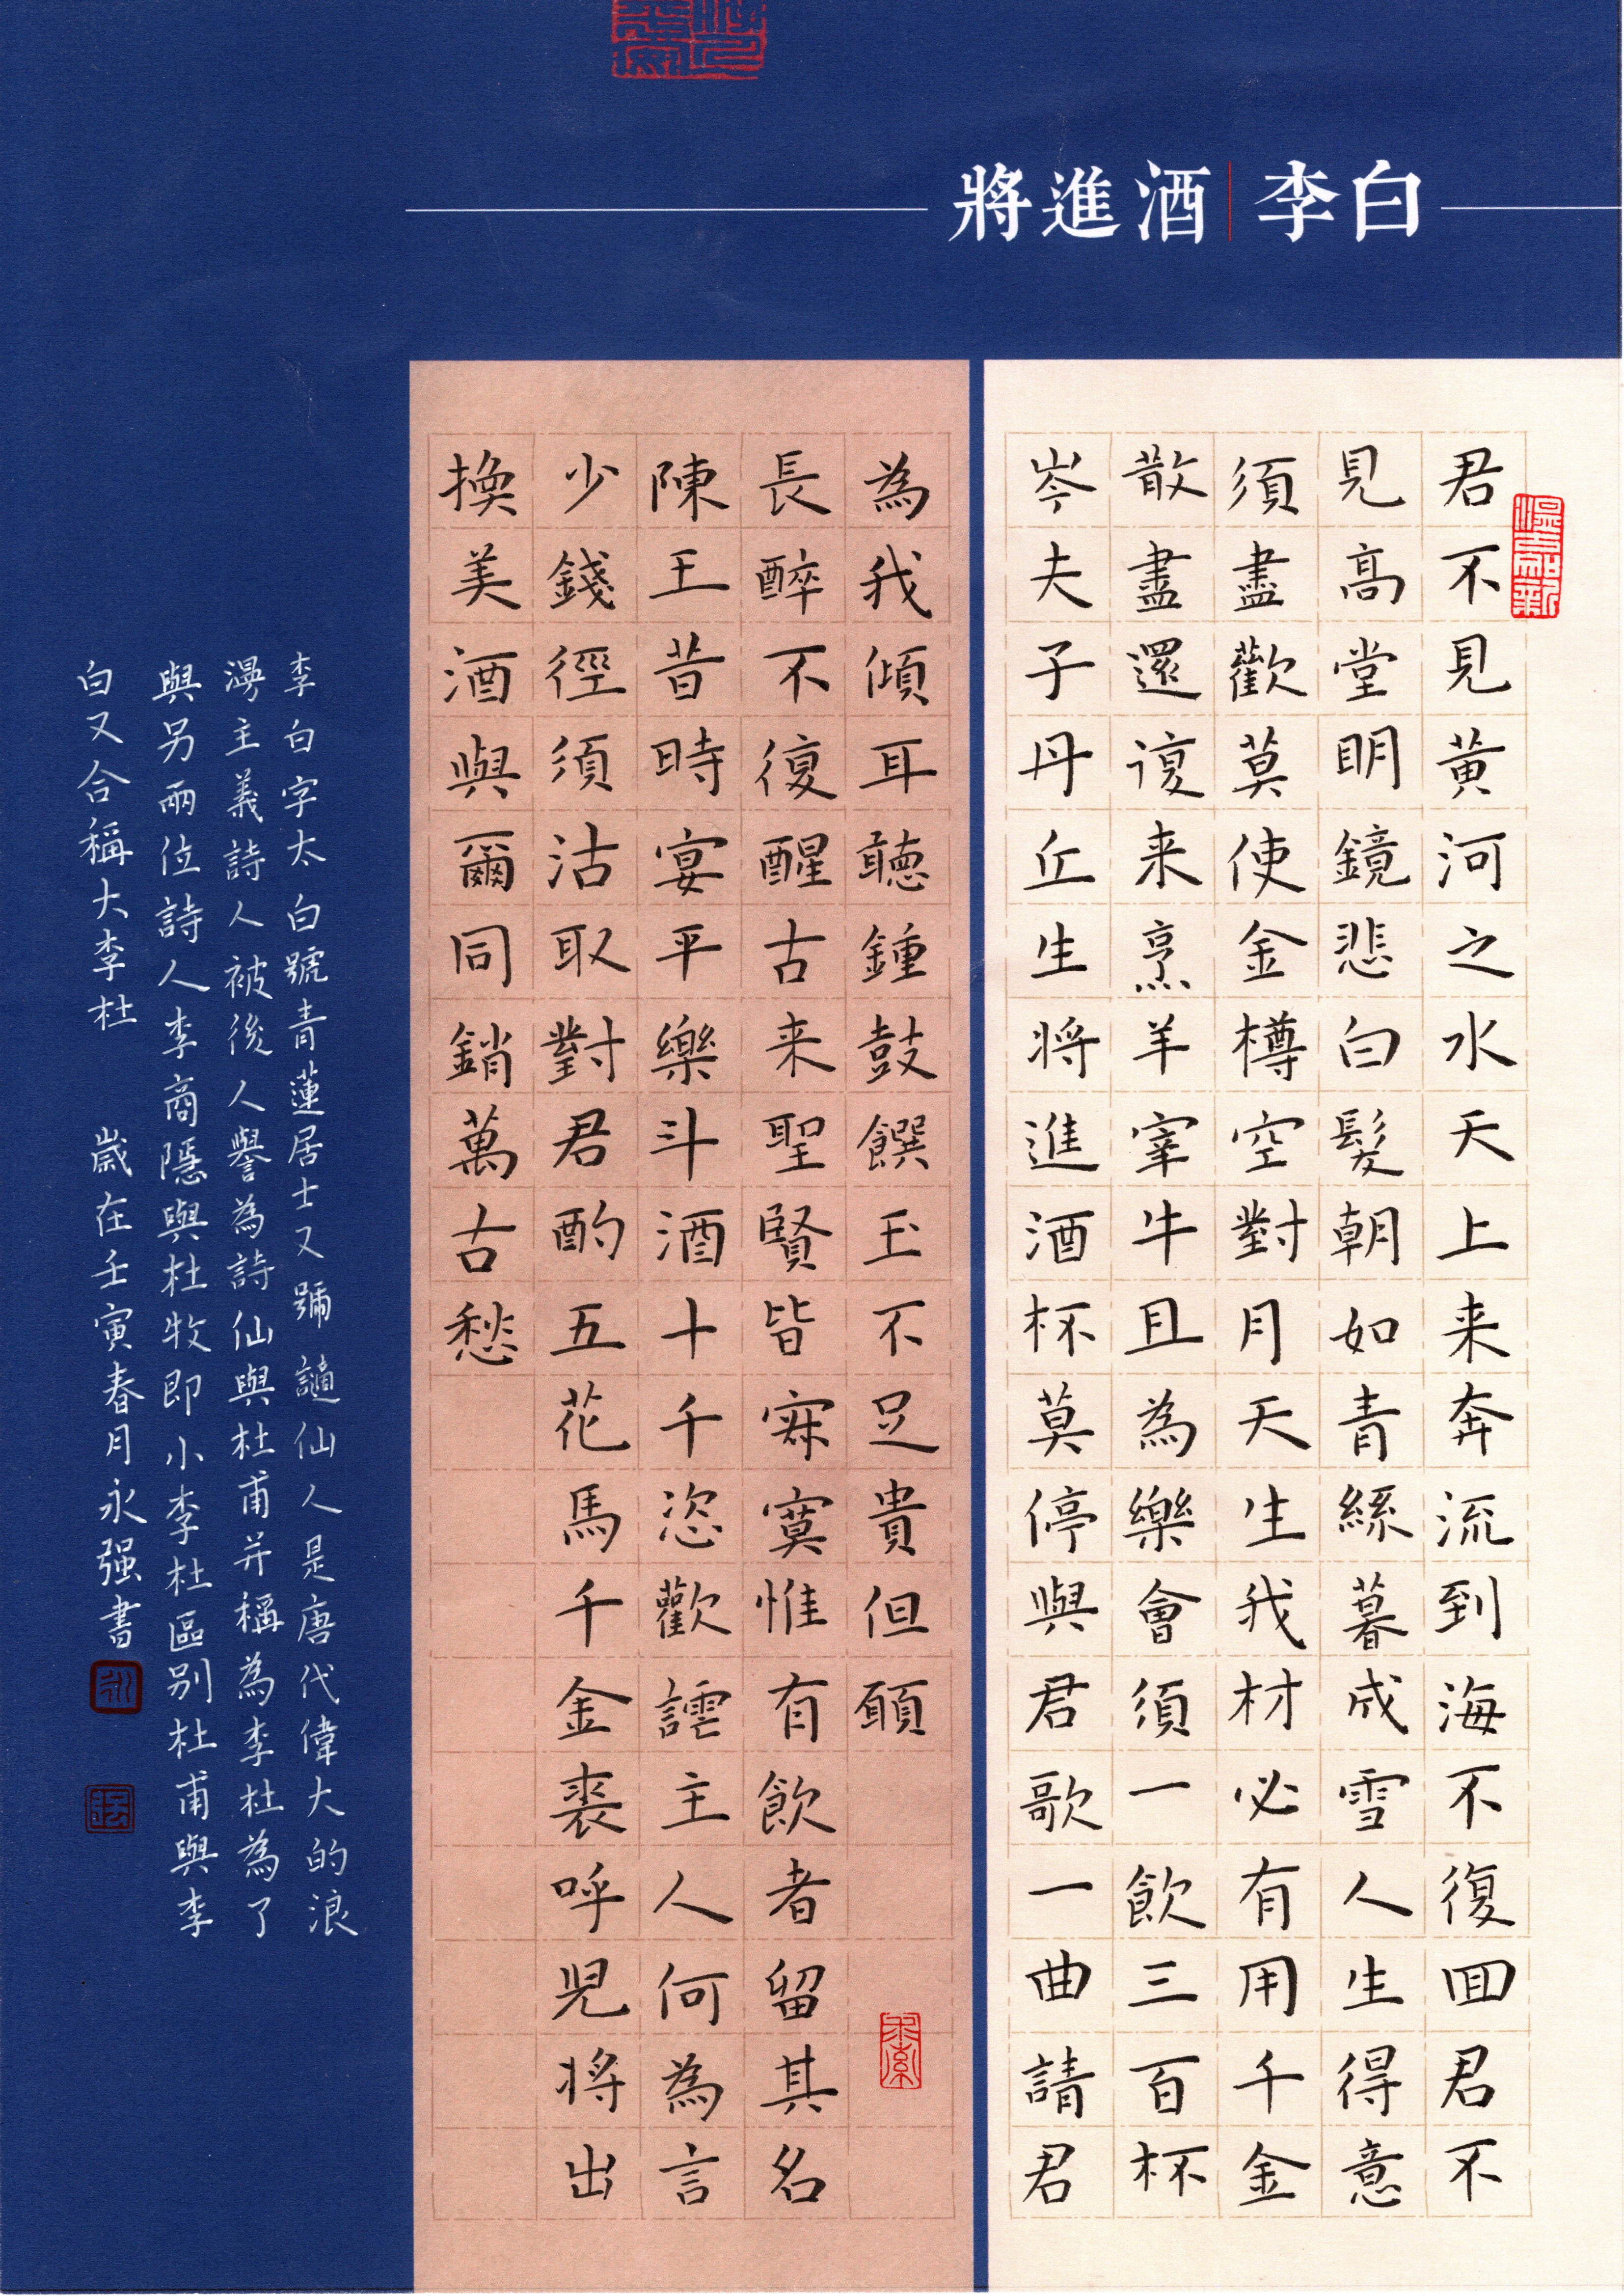 將進酒 李白
君不見黃河之水天上来奔流到海不復回君不
見高堂明鏡悲白髮朝如青絲暮成雪人生得意
須盡歡莫使金樽空對月天生我材必有用千金
散盡還復来烹羊宰牛且為樂會須一飲三百杯
岑夫子丹丘生将進酒杯莫停與君歌一曲請君
為我傾耳聽鍾鼓饌玉不足貴但願
長醉不復醒古来聖賢皆寂寞惟有飲者留其名
陳王昔時宴平樂斗酒十千恣歡謔主人何為言
少錢徑須沽取對君酌五花馬千金裘呼児将出
換美酒與爾同銷萬古愁
李白字太白號青蓮居士又號謫仙人是唐代偉大的浪
漫主義詩人被後人譽為詩仙與杜甫并稱為李杜為了
與另兩位詩人李商隱與杜牧即小李杜區別杜甫與李
白又合稱大李杜 歲在壬寅春月永强書